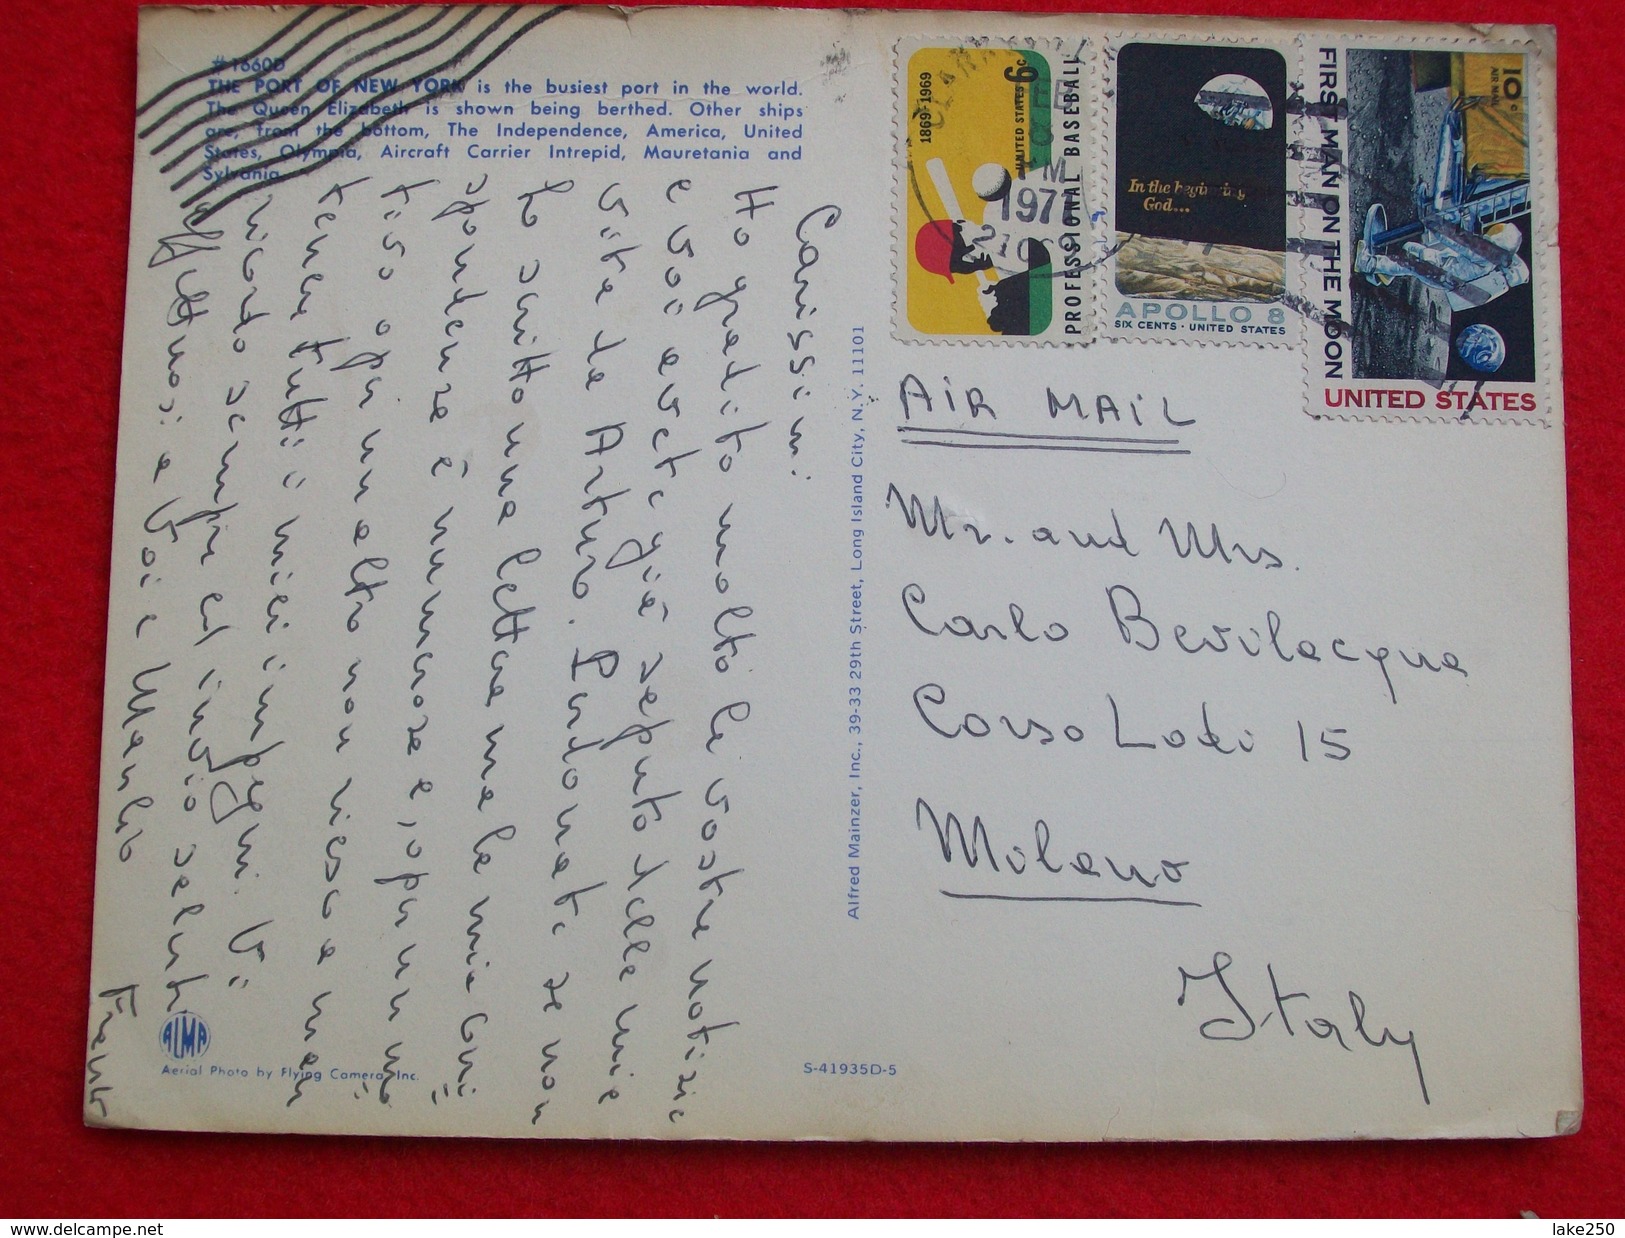 #1660D
THE PORT OF NEW YORK is the busiest port in the world.
The Queen Elizabeth is shown being berthed. Other ships
are, from the bottom, The Independence, America, United
States, Olympia, Aircraft Carrier Intrepid, Mauretania and
Sylvania.
Carissimi
Ho gradito molto le vostre notizie
e voi avete già saputo delle mie
vite da Arturo. Perdonate se non
ho scritto una lettera ma la mia corri
spondenza è numerosa e, o per un mo
tivo o per un altro non riesco a man
tenere tutti i miei impegni. Vi
ricordo sempre ed invio saluti
affettuosi a Voi e
Franco
Alfred Mainzer, Inc., 39-33 29th Street, Long Island City, N.Y. 11101
ALMA
Aerial Photo by Flying Camera, Inc.
S-41935D-5
1869-1969
UNITED STATES 6c
PROFESSIONAL BASEBALL
PM
197
In the beginning
God...
APOLLO 8
SIX CENTS · UNITED STATES
10c
AIR MAIL
FIRST MAN ON THE MOON
UNITED STATES
AIR MAIL
Mr. and Mrs.
Carlo Bevilacqua
Corso Lodi 15
Milano
Italy
www.delcampe.net
lake250